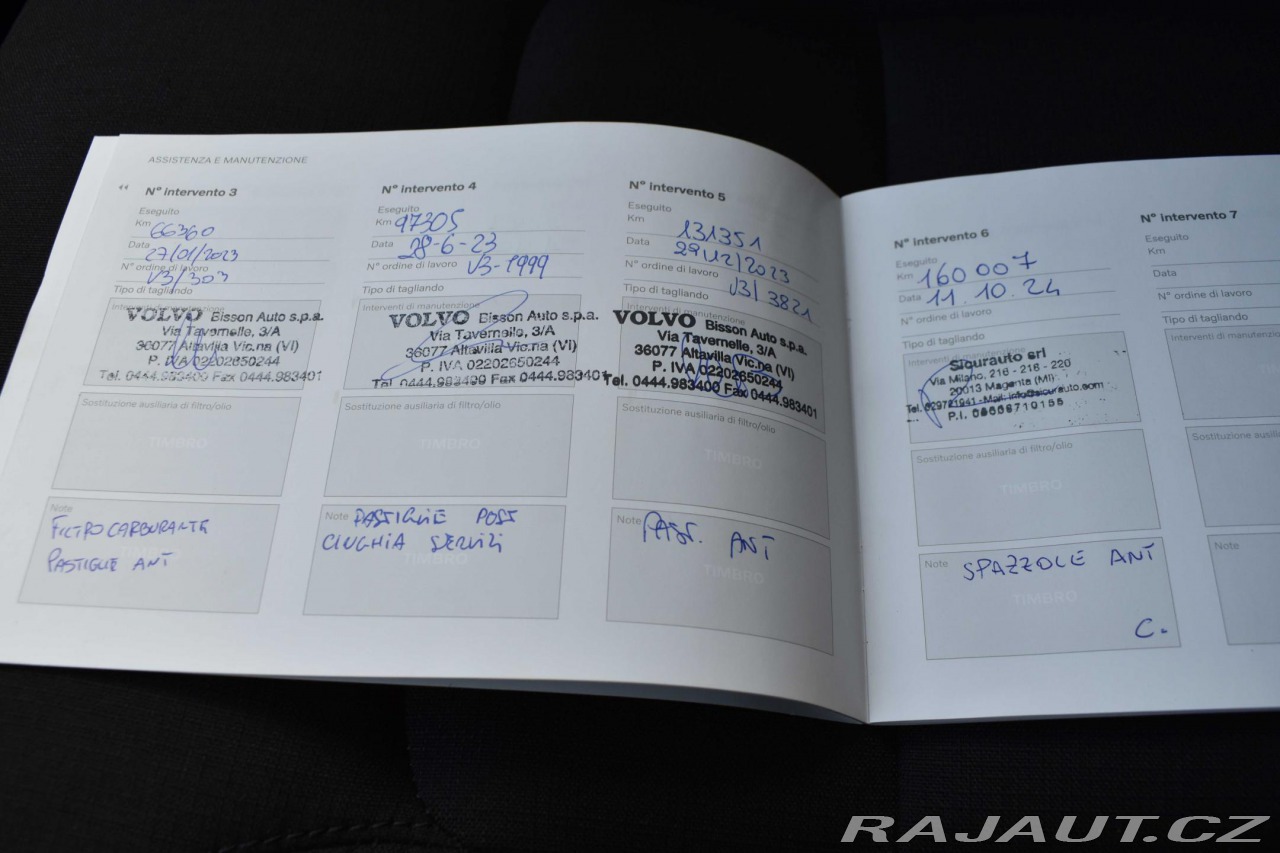 ASSISTENZA E MANUTENZIONE
N° intervento 3
Eseguito
Km 66360
Data 27/01/2023
N° ordine di lavoro
V3/303
Tipo di tagliando
Interventi di manutenzione
VOLVO Bisson Auto s.p.a.
Via Tavernelle, 3/A
36077 Altavilla Vic.na (VI)
P. IVA 02202650244
Tel. 0444.983400 Fax 0444.983401
Sostituzione ausiliaria di filtro/olio
TIMBRO
Note
FILTRO CARBURANTE
PASTIGLIE ANT
N° intervento 4
Eseguito
Km 97305
Data 28-6-23
N° ordine di lavoro V3-1999
Tipo di tagliando
Interventi di manutenzione
VOLVO Bisson Auto s.p.a.
Via Tavernelle, 3/A
36077 Altavilla Vic.na (VI)
P. IVA 02202650244
Tel. 0444.983400 Fax 0444.983401
Sostituzione ausiliaria di filtro/olio
TIMBRO
Note PASTIGLIE POST
CINGHIA SERVIZI
TIMBRO
N° intervento 5
Eseguito
Km 131351
Data 29/12/2023
N° ordine di lavoro
V3/3821
Tipo di tagliando
Interventi di manutenzione
VOLVO Bisson Auto s.p.a.
Via Tavernelle, 3/A
36077 Altavilla Vic.na (VI)
P. IVA 02202650244
Tel. 0444.983400 Fax 0444.983401
Sostituzione ausiliaria di filtro/olio
TIMBRO
Note PAST. ANT
TIMBRO
N° intervento 6
Eseguito
Km 160 007
Data 11.10.24
N° ordine di lavoro
Tipo di tagliando
Interventi di manutenzione
Siqurauto srl
Via Milano, 216 - 218 - 220
20013 Magenta (MI)
P.I.
Sostituzione ausiliaria di filtro/olio
TIMBRO
Note SPAZZOLE ANT
TIMBRO
C.
N° intervento 7
Eseguito
Km
Data
N° ordine di lavoro
Tipo di tagliando
Interventi di
Sostituzione
Note
RAJAUT.CZ